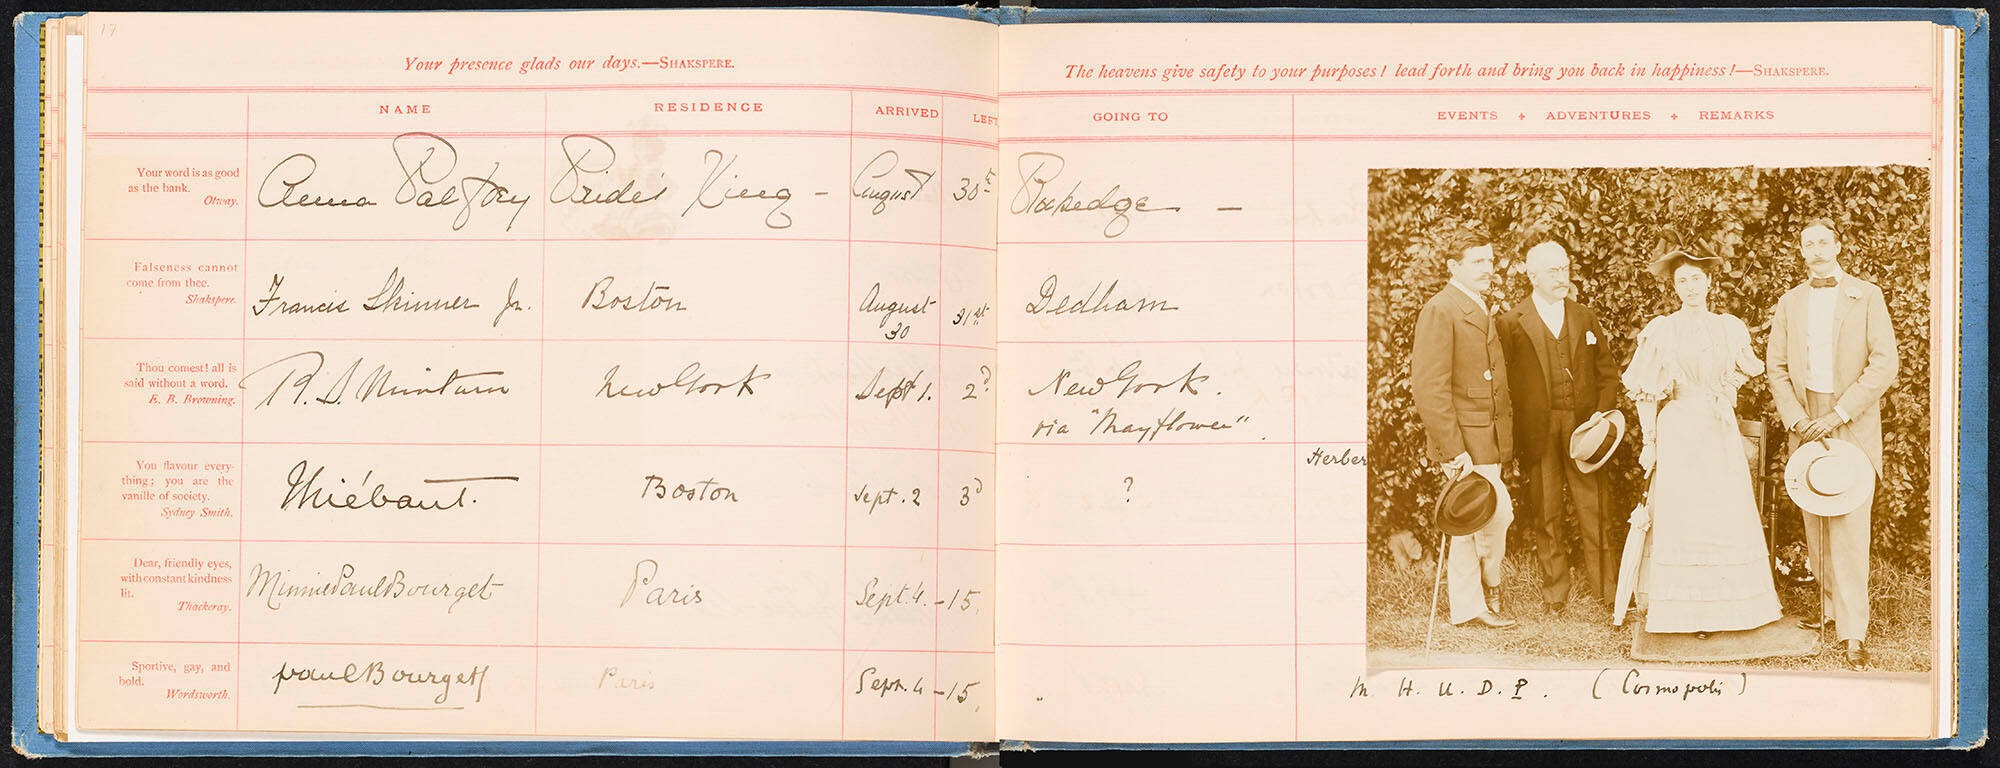 17
Your presence glads our days.—SHAKSPERE.
NAME RESIDENCE ARRIVED LEFT
Your word is as good
as the bank.
Otway.
Anna Palfrey Pride's King – August 30
Falseness cannot
come from thee.
Shakspere.
Francis Skinner Jr. Boston August 30 31st
Thou comest! all is
said without a word.
E. B. Browning.
R. S. Minturn New York Sept 1. 2d
You flavour every-
thing; you are the
vanille of society.
Sydney Smith.
Thiébaut. Boston Sept. 2 3d
Dear, friendly eyes,
with constant kindness
lit.
Thackeray.
Minnie Paul Bourget Paris Sept. 4. – 15.
Sportive, gay, and
bold.
Wordsworth.
Paul Bourget Paris Sept. 4 – 15.
The heavens give safety to your purposes! lead forth and bring you back in happiness!—SHAKSPERE.
GOING TO EVENTS + ADVENTURES + REMARKS
–
Dedham
New York.
via "Mayflower".
Herber
?
"
M. H. U. D. P. (Cosmopolis)